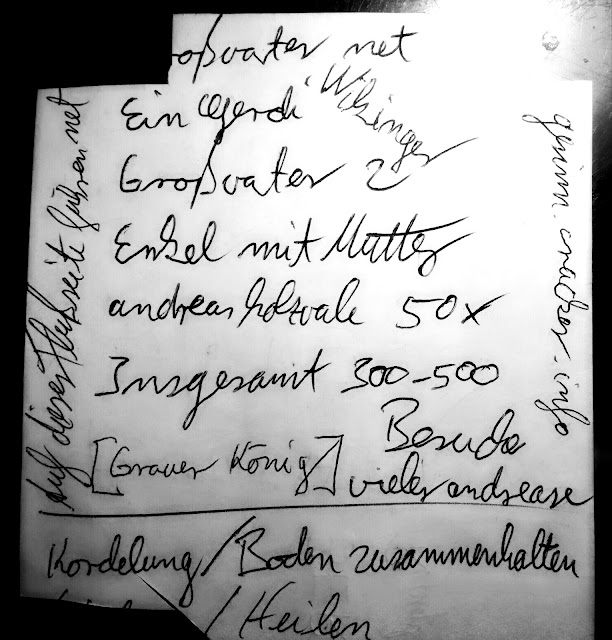 Großvater net
Ein Gerdi Wikinger
Großvater 2
Enkel mit Mutter
andreas holzvale 50x
Insgesamt 300-500
[Grauer König]
Besuda
vieler andrease
Kordelung/Boden zusammenhalten
/Heilen
auf dieser Flußseite führen net
gfinn.cracker.info